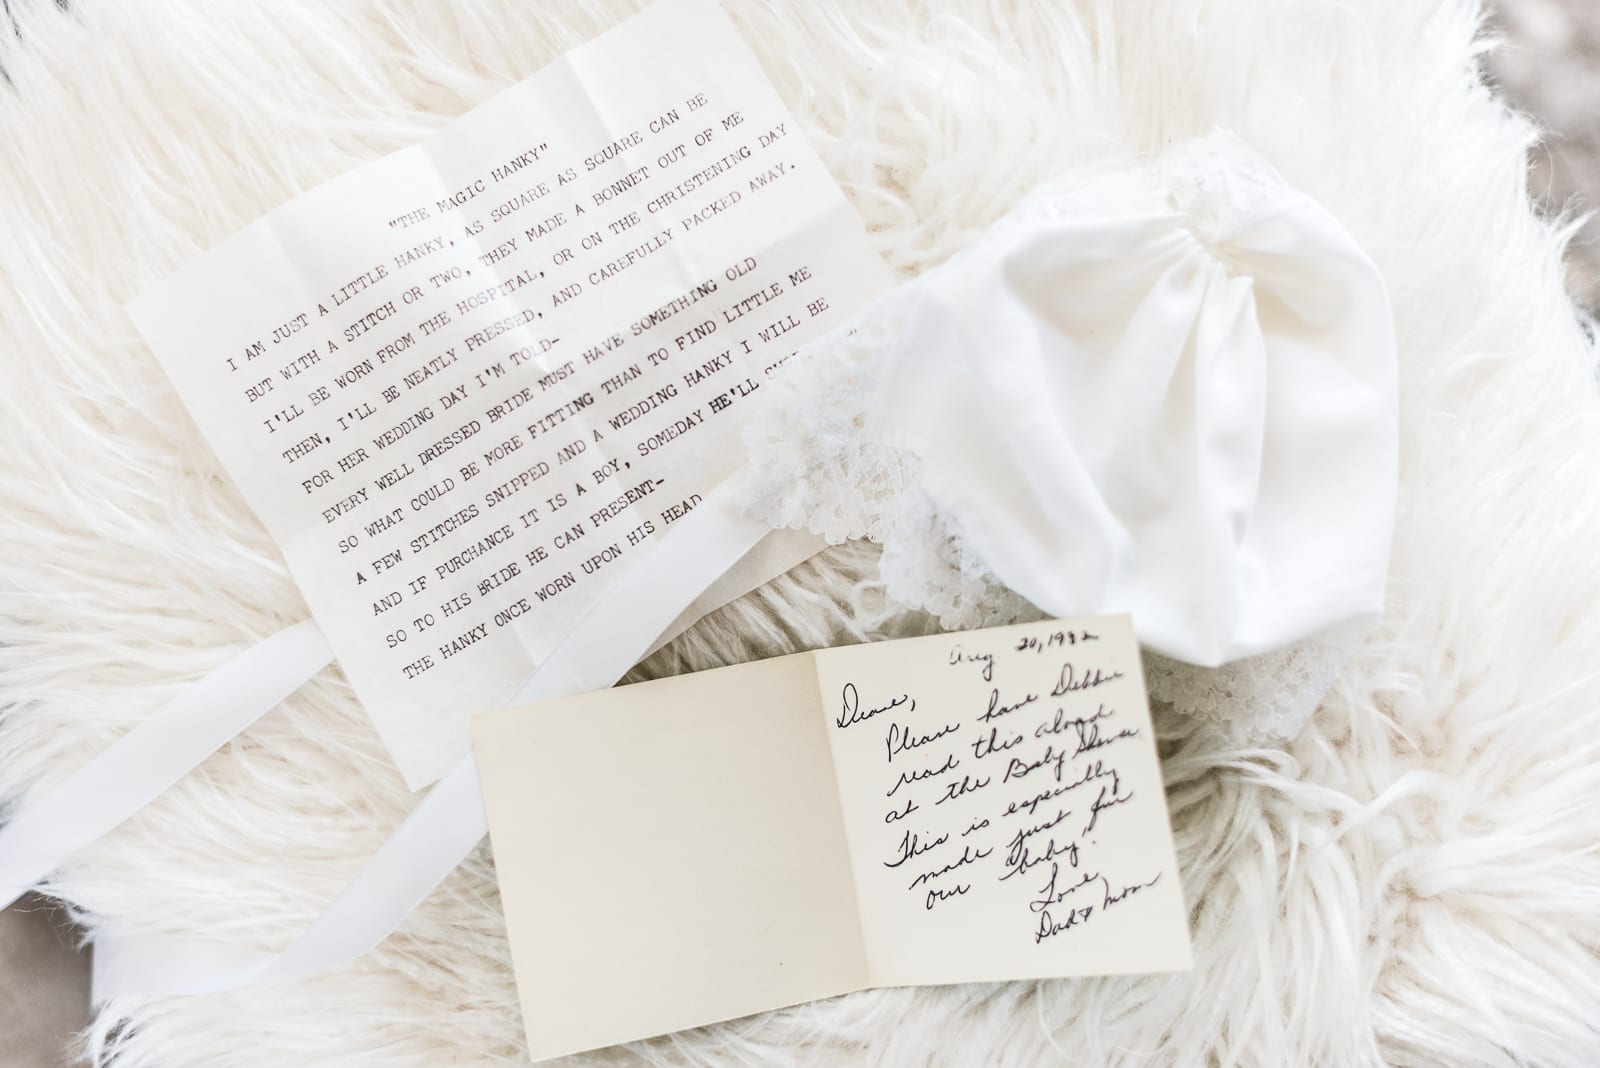 "THE MAGIC HANKY"
I AM JUST A LITTLE HANKY, AS SQUARE AS SQUARE CAN BE
BUT WITH A STITCH OR TWO, THEY MADE A BONNET OUT OF ME
I'LL BE WORN FROM THE HOSPITAL, OR ON THE CHRISTENING DAY
THEN, I'LL BE NEATLY PRESSED, AND CAREFULLY PACKED AWAY.
FOR HER WEDDING DAY I'M TOLD-
EVERY WELL DRESSED BRIDE MUST HAVE SOMETHING OLD
SO WHAT COULD BE MORE FITTING THAN TO FIND LITTLE ME
A FEW STITCHES SNIPPED AND A WEDDING HANKY I WILL BE
AND IF PURCHANCE IT IS A BOY, SOMEDAY HE'LL
SO TO HIS BRIDE HE CAN PRESENT-
THE HANKY ONCE WORN UPON HIS HEAD
Aug 20, 1982
Diane,
Please have Debbie
read this aloud
at the Baby Shower.
This is especially
made just for
our "baby".
Love
Dad & Mom